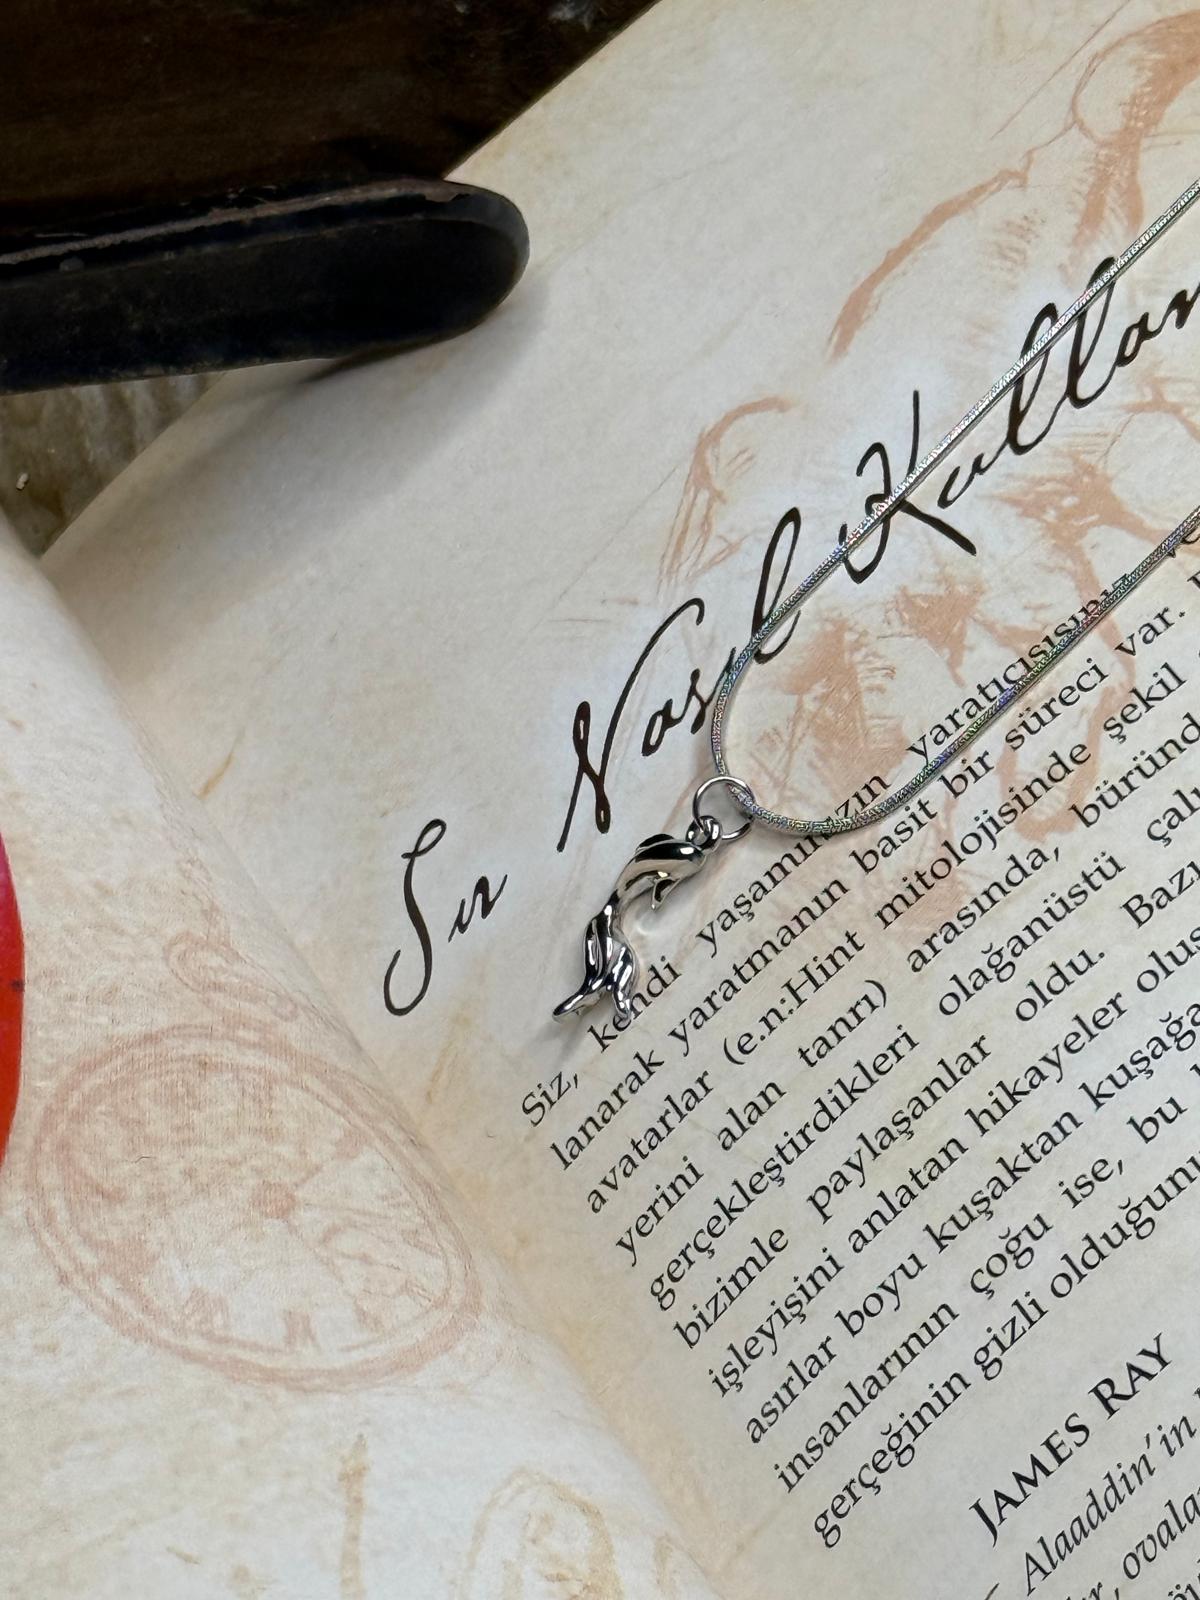 Sır Nasıl Kullan
Siz, kendi yaşamınızın yaratıcısısınız
lanarak yaratmanın basit bir süreci var.
avatarlar (e.n:Hint mitolojisinde şekil
yerini alan tanrı) arasında, büründ
gerçekleştirdikleri olağanüstü çalı
bizimle paylaşanlar oldu. Bazı
işleyişini anlatan hikayeler oluş
asırlar boyu kuşaktan kuşağa
insanlarının çoğu ise, bu
gerçeğinin gizli olduğunu
JAMES RAY
Alaaddin'in
ovala